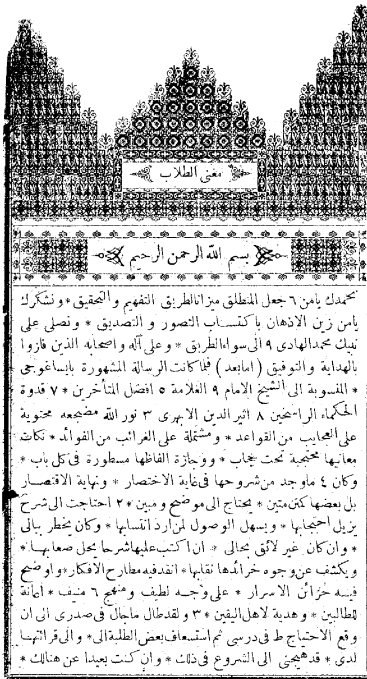 مغنى الطلاب
بسم الله الرحمن الرحيم
نحمدك يامن ٦ جعل المنطق ميزانا لطريق التفهيم والتحقيق * ونشكرك
يامن زين الاذهان باكتساب التصور والتصديق * ونصلى على
نبيك محمد الهادى ٩ الى سواء الطريق * وعلى آله واصحابه الذين فازوا
بالهداية والتوفيق ( امابعد ) فلماكانت الرسالة المشهورة بايساغوجى
* المنسوبة الى الشيخ الامام ٩ العلامة ٥ افضل المتأخرين * ٧ قدوة
الحكماء الراسخين ٨ اثير الدين الابهرى ٣ نور الله مضجعه محتوية
على العجايب من القواعد * ومشتملة على الغرائب من الفوائد * نكات
معانيها محتجبة تحت حجاب * ووجازة الفاظها مسطورة فى كل باب *
وكان ٤ ماوجد من شروحها فى غاية الاختصار * ونهاية الاقتصار
بل بعضها كمتن متين * يحتاج الى موضح ومبين * ٢ احتاجت الى شرح
يزيل احتجابها * ويسهل الوصول لمن اراد انتسابها * وكان يخطر ببالى
* وان كان غير لائق بحالى * ان اكتب عليها شرحا يحل صعابها *
ويكشف عن وجوه خرائدها نقابها * انقد فيه مطارح الافكار * واوضح
فيه خزائن الاسرار * على وجه لطيف ومنهج ٦ منيف * اعانة
للطالبين * وهدية لاهل اليقين * ٣ ولقد طال ماجال فى صدرى الى ان
وقع الاحتياج ط فى درسى ثم استسعاف بعض الطلبة الى * والى قرائتها
لدى * قد هيجنى الى الشروع فى ذلك * وان كنت بعيدا عن هنالك *